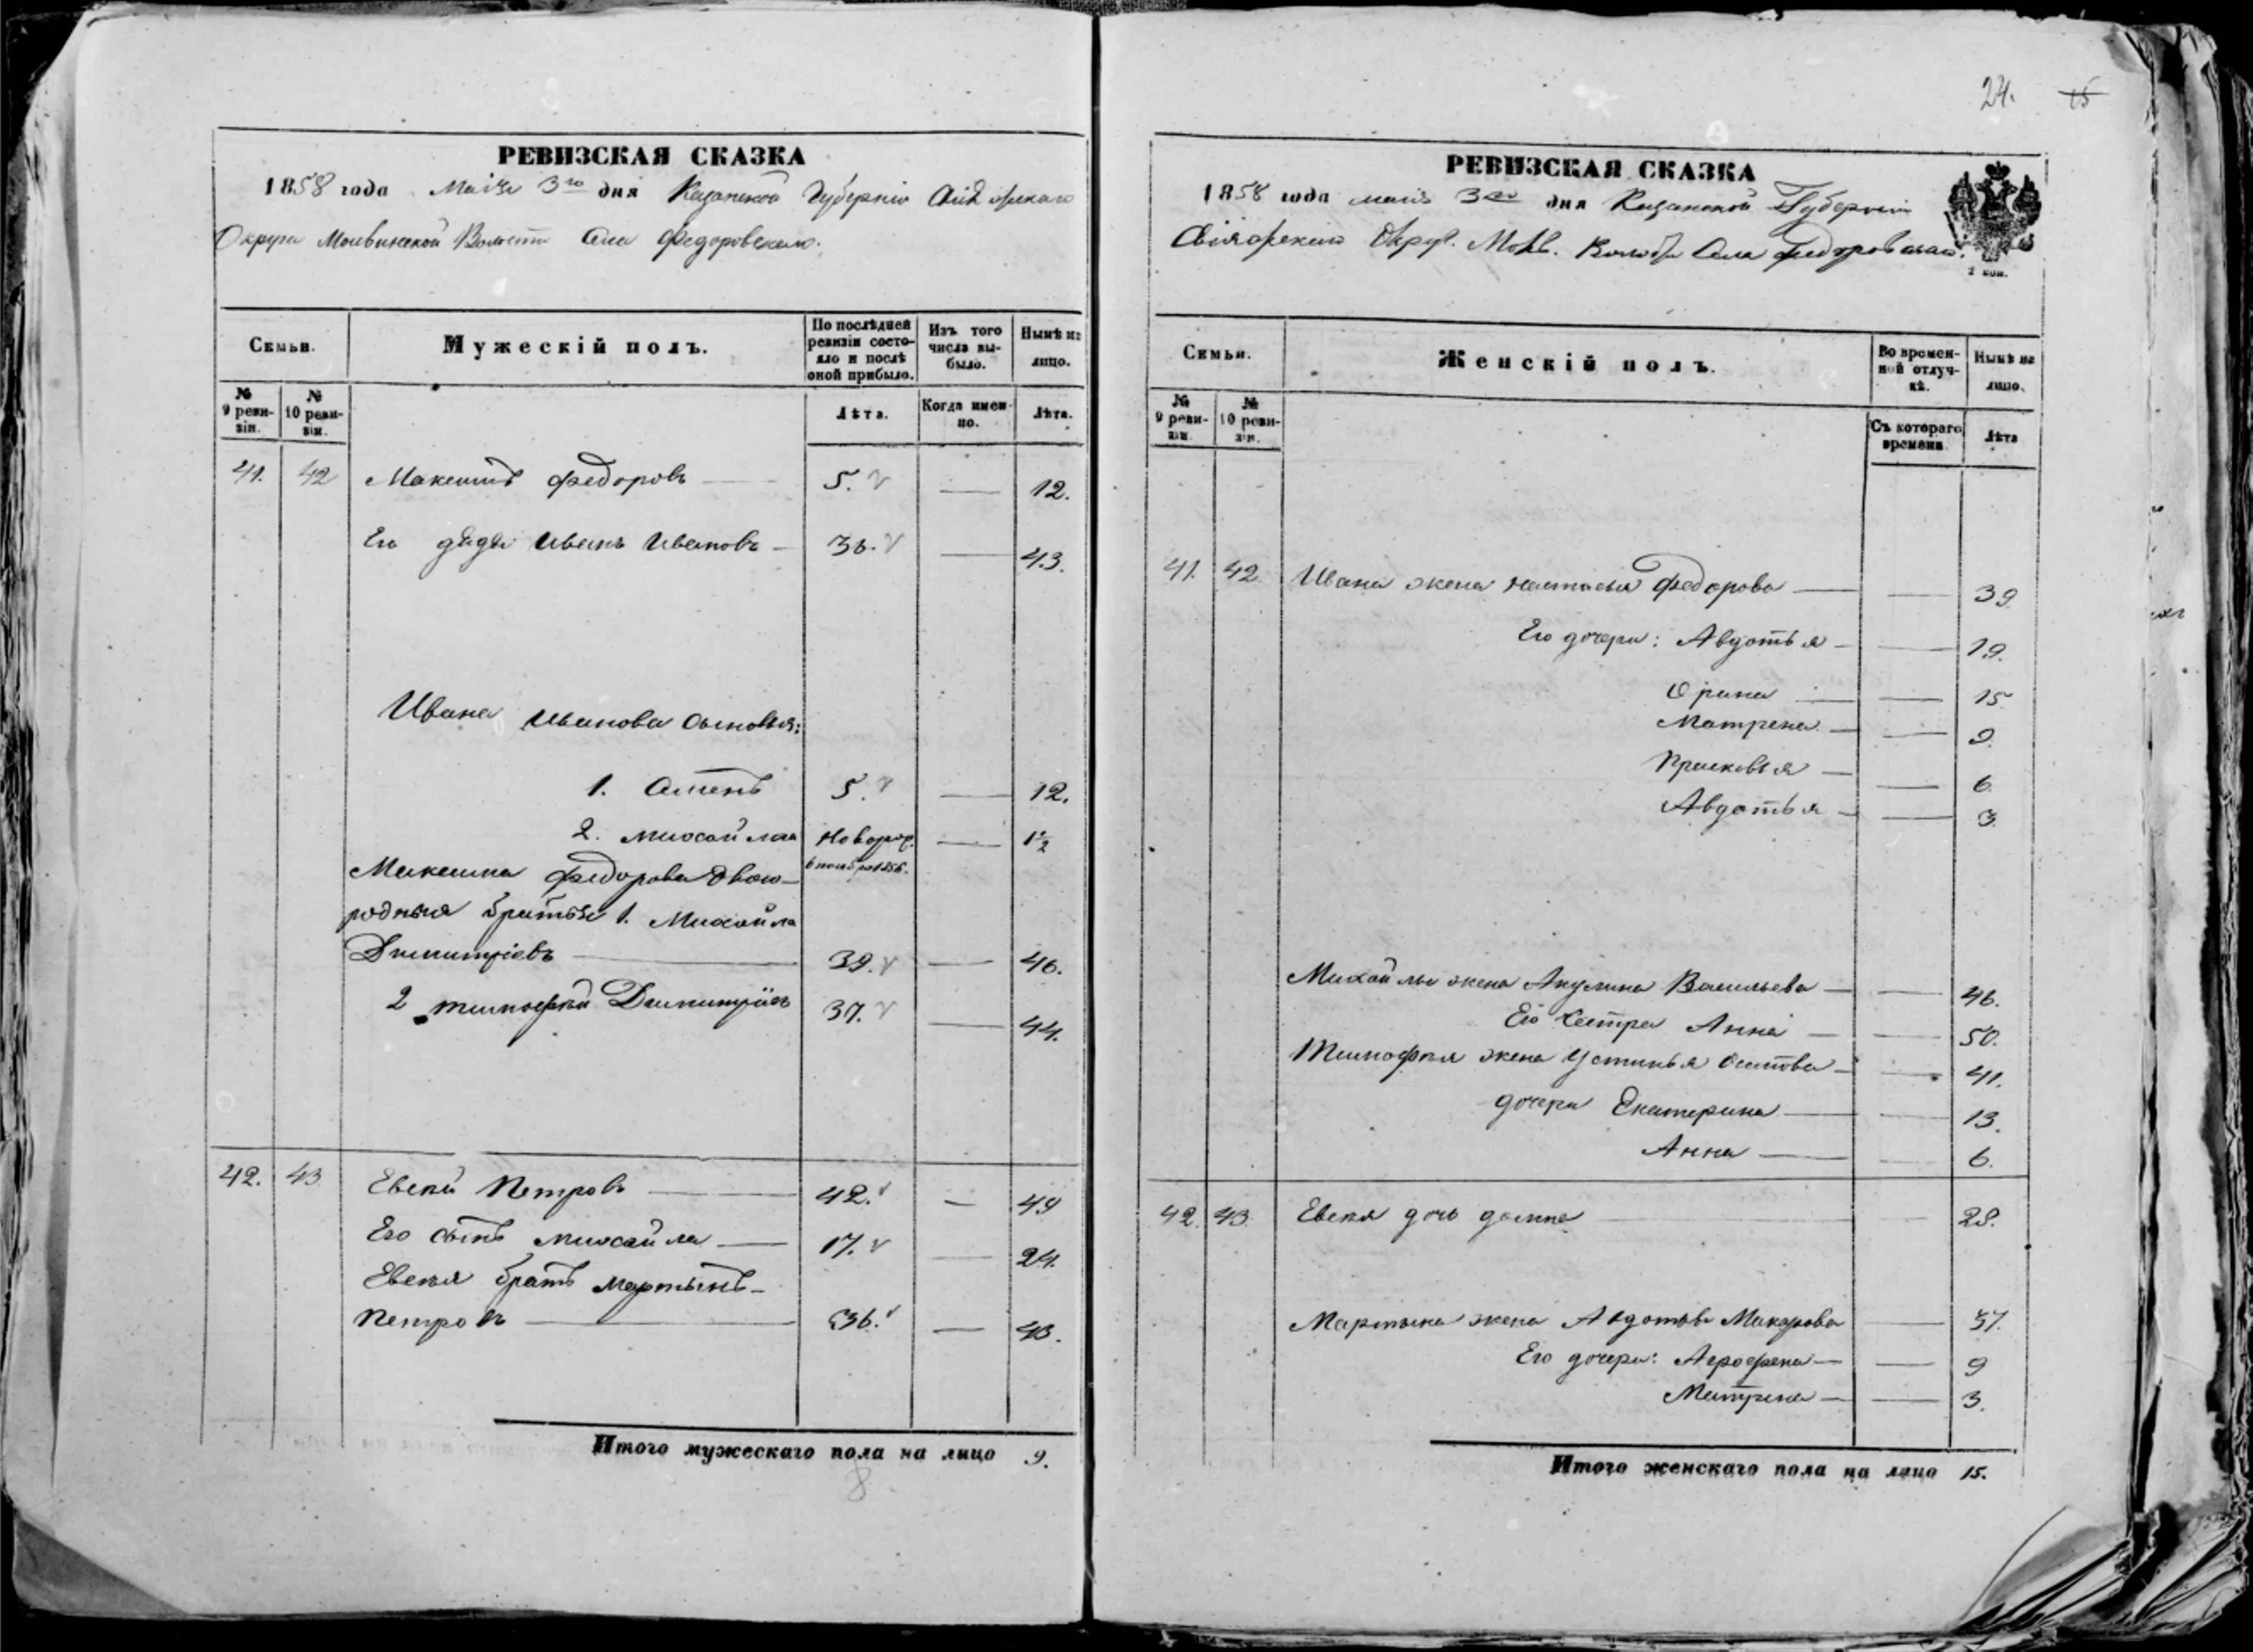 РЕВИЗСКАЯ СКАЗКА
1858 года Маія 3го дня Казанской Губерніи Свіяжскаго
Округа Молвинской Волости Села Федоровскаго.
Семьи.
Мужескій полъ.
По послѣдней ревизіи состояло и послѣ оной прибыло.
Изъ того числа выбыло.
Нынѣ на лицо.
№ 9 ревизіи.
№ 10 ревизіи.
Лѣта.
Когда именно.
Лѣта.
41. 42 Максимъ Федоровъ — 5. — 12.
Его дядя Иванъ Ивановъ — 36. — 43.
Ивана Иванова сыновья:
1. Семенъ 5. — 12.
2. Михайла Новорож. — 1½
6 ноября 1856.
Максима Федорова двою-
родныя братья 1. Михайла
Димитріевъ — 39. — 46.
2 Тимофей Димитріевъ 37. — 44.
42. 43 Евсей Петровъ — 42. — 49
Его сынъ Михайла — 17. — 24.
Евсея братъ Мартынъ
Петровъ — 36. — 43.
Итого мужескаго пола на лицо 9.
8
24. 15
РЕВИЗСКАЯ СКАЗКА
1858 года маія 3го дня Казанской Губерніи
Свіяжскаго Округ. Молв. Волости Села Федоровскаго.
2 коп.
Семьи.
Женскій полъ.
Во временной отлучкѣ.
Нынѣ на лицо.
№ 9 ревизіи.
№ 10 ревизіи.
Съ котораго времени
Лѣта
41. 42. Ивана жена Настасья Федорова — — 39.
Его дочери: Авдотья — — 19.
Орина — — 15
Матрена — — 9.
Прасковья — — 6.
Авдотья — — 3.
Михайлы жена Акулина Васильева — — 46.
Его сестра Анна — — 50.
Тимофея жена Устинья Осипова — — 41.
дочери Екатерина — — 13.
Анна — — 6.
42. 43. Евсея дочь Домна — — 28.
Мартына жена Авдотья Макарова — 37.
Его дочери: Агрофена — — 9
Матрена — — 3.
Итого женскаго пола на лицо 15.